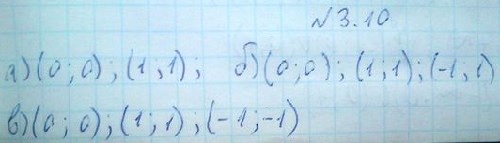 №3.10
а)(0;0);(1;1); б)(0;0);(1;1);(-1;1)
в)(0;0);(1;1);(-1;-1)